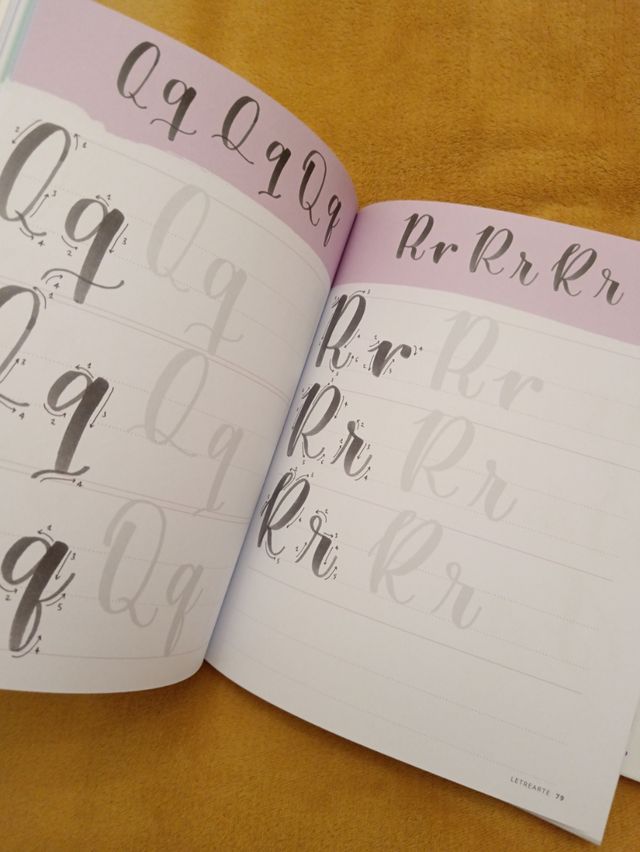 Qq Qq Qq
Qq Qq
Qq Qq
q Qq
Rr Rr Rr
Rr Rr
Rr Rr
Rr Rr
LETREARTE 79